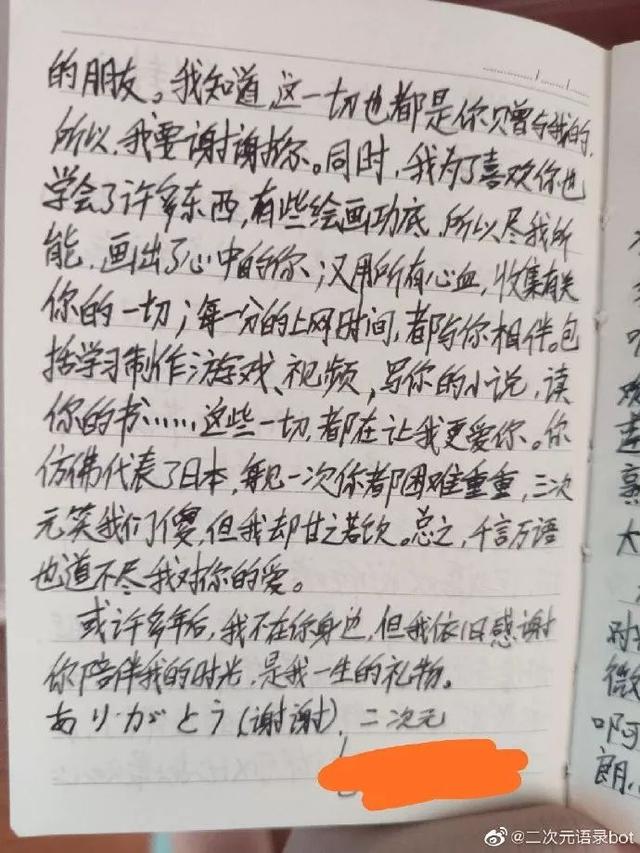 的朋友。我知道,这一切也都是你赠与我的,
所以,我要谢谢你。同时,我为了喜欢你也
学会了许多东西,有些绘画功底,所以尽我所
能,画出了心中的你;又用所有心血,收集有关
你的一切;每一分的上网时间,都与你相伴。包
括学习制作游戏、视频,写你的小说,读
你的书……这些一切,都在让我更爱你。你
仿佛代表了日本,每见一次你都困难重重,三次
元笑我们傻,但我却甘之若饮。总之,千言万语
也道不尽我对你的爱。
或许多年后,我不在你身边,但我依旧感谢
你陪伴我的时光,是我一生的礼物。
ありがとう(谢谢),二次元
欢
连
熟
大
对
微
啊
朗
@二次元语录bot